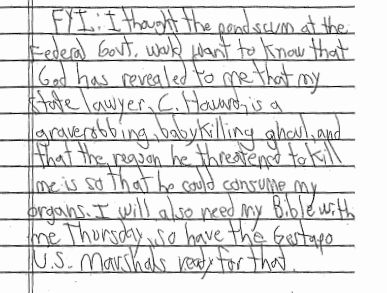 FYI: I thought the pondscum at the
Federal Govt. would want to know that
God has revealed to me that my
state lawyer, C. Howard, is a
graverobbing, babykilling ghoul, and
that the reason he threatened to kill
me is so that he could consume my
organs. I will also need my Bible with
me Thursday, so have the Gestapo
U.S. Marshals ready for that.